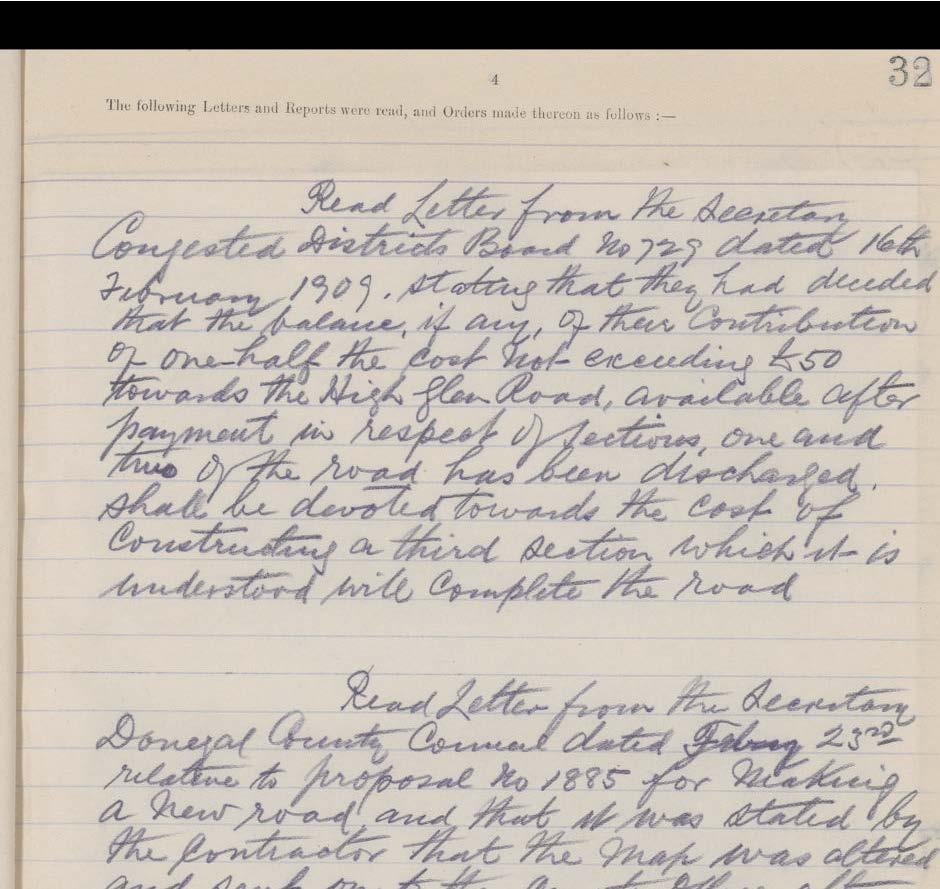 4
32
The following Letters and Reports were read, and Orders made thereon as follows :—
Read Letter from the Secretary
Congested Districts Board No 729 dated 16th
February 1909. stating that they had decided
that the balance, if any, of their Contribution
of one-half the cost not exceeding £50
towards the High Glen Road, available after
payment in respect of sections, one and
two of the road has been discharged.
shall be devoted towards the cost of
Constructing a third section which it is
understood will complete the road
Read Letter from the Secretary
Donegal County Council dated Febry 23rd
relative to proposal No 1885 for Making
a New road and that it was stated by
the Contractor that the Map was altered
and